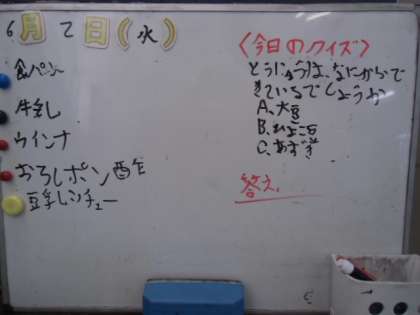 6月2日(火)
食パン
牛乳
ウインナ
おろしポン酢
豆乳シチュー
〈今日のクイズ〉
とうにゅうは、なにからで
きているでしょうか
A、大豆
B、ひよこ豆
C、あずき
答え、